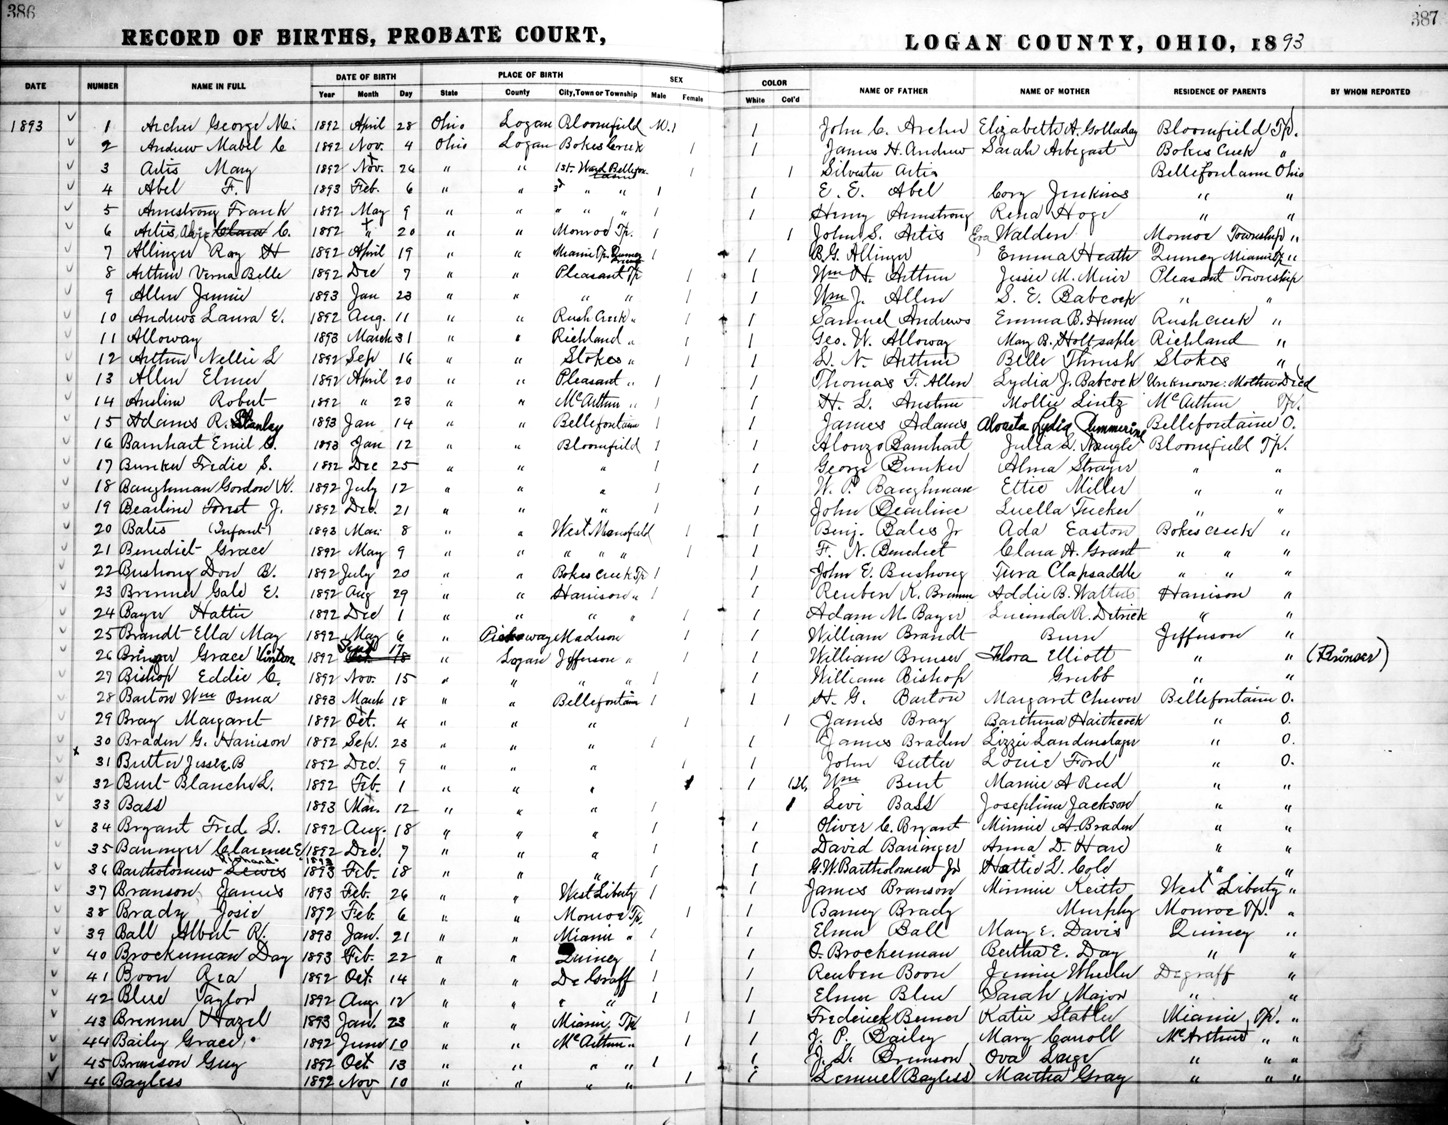 386
387
RECORD OF BIRTHS, PROBATE COURT,
LOGAN COUNTY, OHIO, 1893
DATE NUMBER NAME IN FULL DATE OF BIRTH PLACE OF BIRTH SEX COLOR NAME OF FATHER NAME OF MOTHER RESIDENCE OF PARENTS BY WHOM REPORTED
Year Month Day State County City, Town or Township Male Female White Col'd
1893 1 Archer George M. 1892 April 28 Ohio Logan Bloomfield M. 1 1 John C. Archer Elizabeth A. Golladay Bloomfield Tp.
2 Andrew Mabel C 1892 Nov. 4 Ohio Logan Bokes Creek 1 1 James H. Andrew Sarah Arbegast Bokes Creek "
3 Artis Mary 1892 Nov. 26 " " 1st. Ward Bellefon 1 1 Silvester Artis Bellefontaine Ohio
4 Abel F. 1893 Feb. 6 " " 3d " " 1 1 E. E. Abel Cory Jenkins " "
5 Armstrong Frank 1892 May 9 " " " " " 1 1 Henry Armstrong Rena Hoge " "
6 Artis Clara C. 1892 " 20 " " Monroe Tp. 1 1 John S. Artis Eva Walden Monroe Township "
7 Allinger Ray H 1892 April 19 " " Miami Tp. Quincy 1 1 B. G. Allinger Emma Heath Quincy Miami Tp "
8 Arthur Verna Belle 1892 Dec 7 " " Pleasant Tp 1 1 Wm H. Arthur Jesie M. Muir Pleasant Township
9 Allen Jennie 1893 Jan 23 " " " " 1 1 Wm J. Allen S. E. Babcock " "
10 Andrews Laura E. 1892 Aug. 11 " " Rush Creek " 1 1 Samuel Andrews Emma B. Hume Rush Creek "
11 Alloway 1893 March 31 " " Richland " 1 1 Geo. W. Alloway May B. Holtsaple Richland "
12 Arthur Nellie L 1892 Sep 16 " " Stokes " 1 1 L. N. Arthur Belle Thrush Stokes "
13 Allen Elmer 1892 April 20 " " Pleasant " 1 1 Thomas F. Allen Lydia J. Babcock Unknown: Mother Died
14 Robert 1892 " 23 " " McArthur " 1 1 H. L. Mollie Lintz McArthur Tp.
15 Adams R. Stanley 1893 Jan 14 " " Bellefontaine 1 1 James Adams Lydia Bellefontaine O.
16 Barnhart Emil C. 1893 Jan 12 " " Bloomfield 1 1 Alonzo Barnhart Julia L. Naugle Bloomfield Tp.
17 Bunker Fredie S. 1892 Dec 25 " " " 1 1 George Bunker Alma Strayer " "
18 Baughman Gordon K. 1892 July 12 " " " 1 1 W. P. Baughman Ettie Miller " "
19 Bearline Forest J. 1892 Dec. 21 " " " 1 1 John Bearline Luella Tucker " "
20 Bales (Infant) 1893 Mar. 8 " " West Mansfield 1 1 Benj. Bales Jr Ada Easton Bokes Creek "
21 Benedict Grace 1892 May 9 " " " " " 1 1 F. N. Benedict Clara A. Grant " " "
22 Bushong Don B. 1892 July 20 " " Bokes Creek Tp 1 1 John E. Bushong Tura Clapsaddle " " "
23 Brenner Gale E. 1892 Aug 29 " " Harrison " 1 1 Reuben K. Brenner Addie B. Watkins Harrison "
24 Bayer Hattie 1892 Dec 1 " " " " 1 1 Adam M. Bayer Lucinda R. Detrick " "
25 Brandt Ella May 1892 May 6 " Pickaway Madison 1 1 William Brandt Burn Jefferson "
26 Bringer Grace Vinton 1892 Sept 17 " Logan Jefferson " 1 1 William Brenser Flora Elliott " " (Brinser)
27 Bishop Eddie C. 1892 Nov. 15 " " " " 1 1 William Bishop Grubb " "
28 Barton Wm Osma 1893 March 18 " " Bellefontain 1 1 H. G. Barton Margaret Chewer Bellefontaine O.
29 Bray Margaret 1892 Oct. 4 " " " 1 1 James Bray Barthena Haithcock " O.
30 Braden G. Harrison 1892 Sep. 23 " " " 1 1 James Braden Lizzie Landenslager " O.
31 Butter Jesse B 1892 Dec. 9 " " " 1 1 John Butter Louie Ford " O.
32 Burt Blanche L. 1892 Feb. 1 " " " 1 1 Wm Burt Mamie A Reed " "
33 Bass 1893 Mar. 12 " " " 1 1 Levi Bass Josephine Jackson " "
34 Bryant Fred L. 1892 Aug. 18 " " " 1 1 Oliver C. Bryant Minnie A. Braden " "
35 Baringer Clarence E 1892 Dec. 7 " " " 1 1 David Baringer Anna D. Hare " "
36 Bartholomew Lewis 1893 Feb. 18 " " " 1 1 G. W. Bartholomew Jr Hattie L. Cole " "
37 Branson James 1893 Feb. 26 " " West Liberty 1 1 James Branson Minnie Keith West Liberty "
38 Brady Josie 1892 Feb. 6 " " Monroe Tp. 1 1 Barney Brady Murphy Monroe Tp. "
39 Ball Albert R. 1893 Jan. 21 " " Miami " 1 1 Elmer Ball Mary E. Davis Quincy "
40 Brockerman Day 1893 Feb. 22 " " Quincy 1 1 O. Brockerman Bertha E. Day " "
41 Boon Ora 1892 Oct. 14 " " De Graff 1 1 Reuben Boon Jennie Wheeler Degraff "
42 Blue Taylor 1892 Aug. 12 " " " " 1 1 Elmer Blue Sarah Major " "
43 Brenner Hazel 1893 Jan. 23 " " Miami Tp 1 1 Frederick Benner Katie Stabler Miami Tp. "
44 Bailey Grace 1892 June 10 " " McArthur " 1 1 J. P. Bailey Mary Carroll McArthur " "
45 Brunson Guy 1892 Oct 13 " " " " 1 1 J. L. Brunson Ova Large " " "
46 Bayless 1892 Nov 10 " " " " 1 1 Lemuel Bayless Martha Gray " " "